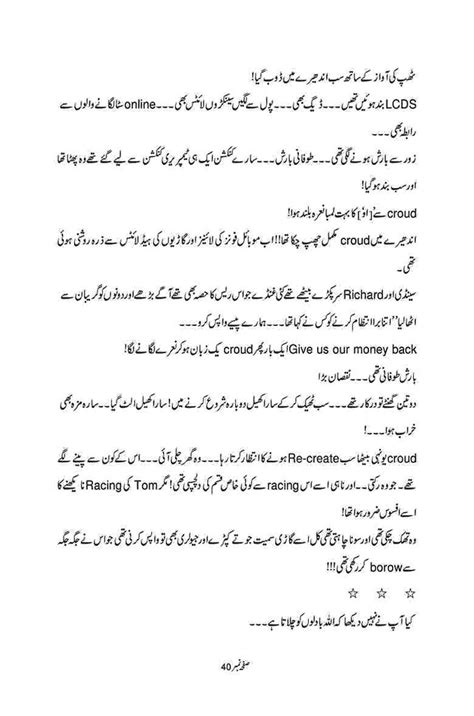 ٹھپ کی آواز کے ساتھ سب اندھیرے میں ڈوب گیا!
LCDS بند ہوئیں تھیں۔۔۔ڈیگ بھی۔۔۔پول سے لگیں سینکڑوں لائٹس بھی۔۔۔online سٹا لگانے والوں سے
رابطہ بھی۔۔۔
زور سے بارش ہونے لگی تھی۔۔۔طوفانی بارش۔۔۔سارے کنکشن ایک ہی ٹیمپریری کنکشن سے لیے گئے تھے وہ پھٹا تھا
اور سب بند ہو گیا!
croud سے [اوُ] کا بہت لمبا نعرہ بلند ہوا!
اندھیرے میں croud مکمل چھپ چکا تھا!!اب موبائل فونز کی لائیٹز اور گاڑیوں کی ہیڈ لائٹس سے ذرہ روشنی ہوئی
تھی۔
سینڈی اور Richard سر پکڑے بیٹھے تھے کئی غنڈے جو اس ریس کا حصہ بھی تھے آگے بڑھے اور دونوں کو گریبان سے
اٹھا لیا ''اتنا برا انتظام کرنے کو کس نے کہا تھا۔۔۔ہمارے پیسے واپس کرو۔۔۔
Give us our money back ایک بار پھر croud یک زبان ہو کر نعرے لگانے لگا!
بارش طوفانی تھی۔۔۔نقصان بڑا
دو تین گھنٹے تو درکار تھے۔۔۔سب ٹھیک کر کے سارا کھیل دوبارہ شروع کرنے میں! سارا کھیل الٹ گیا۔۔سارہ مزہ بھی
خراب ہوا۔۔۔!
croud یونہی بیٹھا سب Re-create ہونے کا انتظار کرتا رہا۔۔۔وہ گھر چلی آئی۔۔۔اس کے کون سے پیسے لگے
تھے۔ جو وہ رکتی۔۔اور نا ہی اسے اس racing سے کوئی خاص قسم کی دلچسپی تھی! مگر Tom کی Racing نا دیکھنے کا
اسے افسوس ضرور ہوا تھا!
وہ تھک چکی تھی اور سونا چاہتی تھی کل اسے گاڑی سمیت جوتے کپڑے اور جیولری بھی تو واپس کرنی تھی جو اس نے جگہ جگہ
سے borow کر رکھی تھی!!!
☆ ☆ ☆
کیا آپ نے نہیں دیکھا کہ اللہ بادلوں کو چلاتا ہے۔۔۔
صفحہ نمبر 40